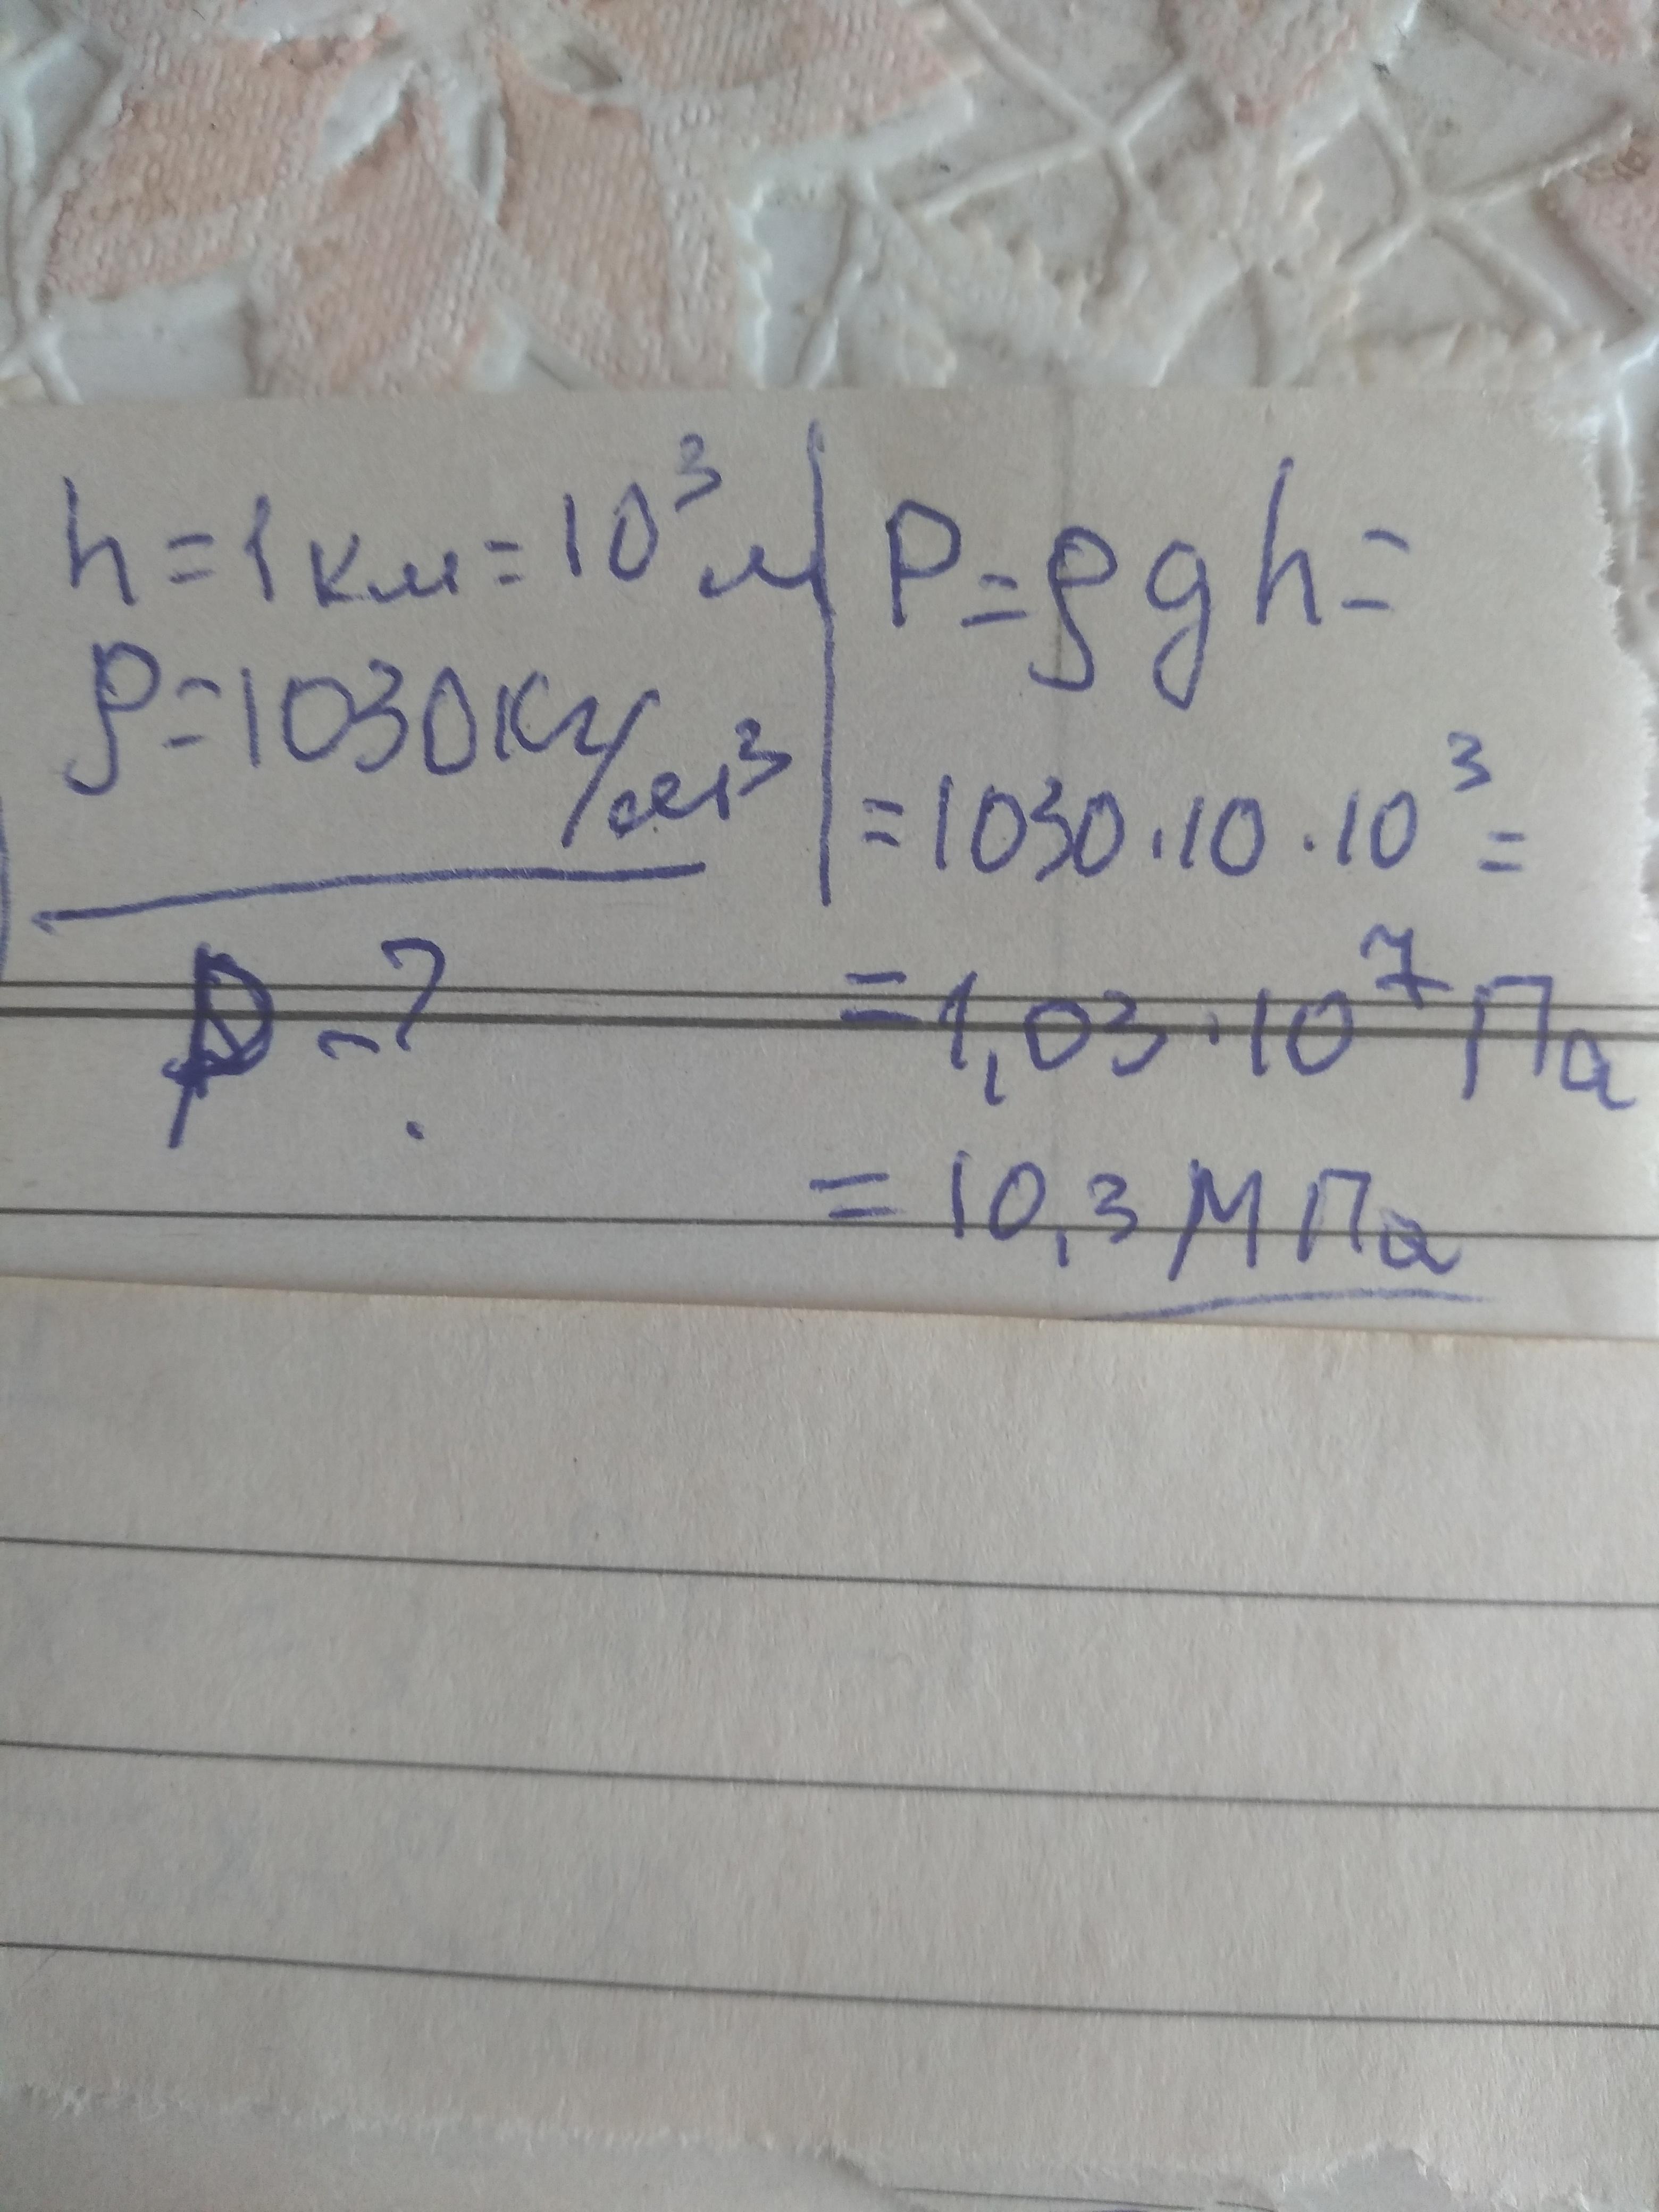 h = 1 км = 10³ м
ρ = 1030 кг/м³
p - ?
P = ρ g h =
= 1030 · 10 · 10³ =
= 1,03 · 10⁷ Па
= 10,3 МПа